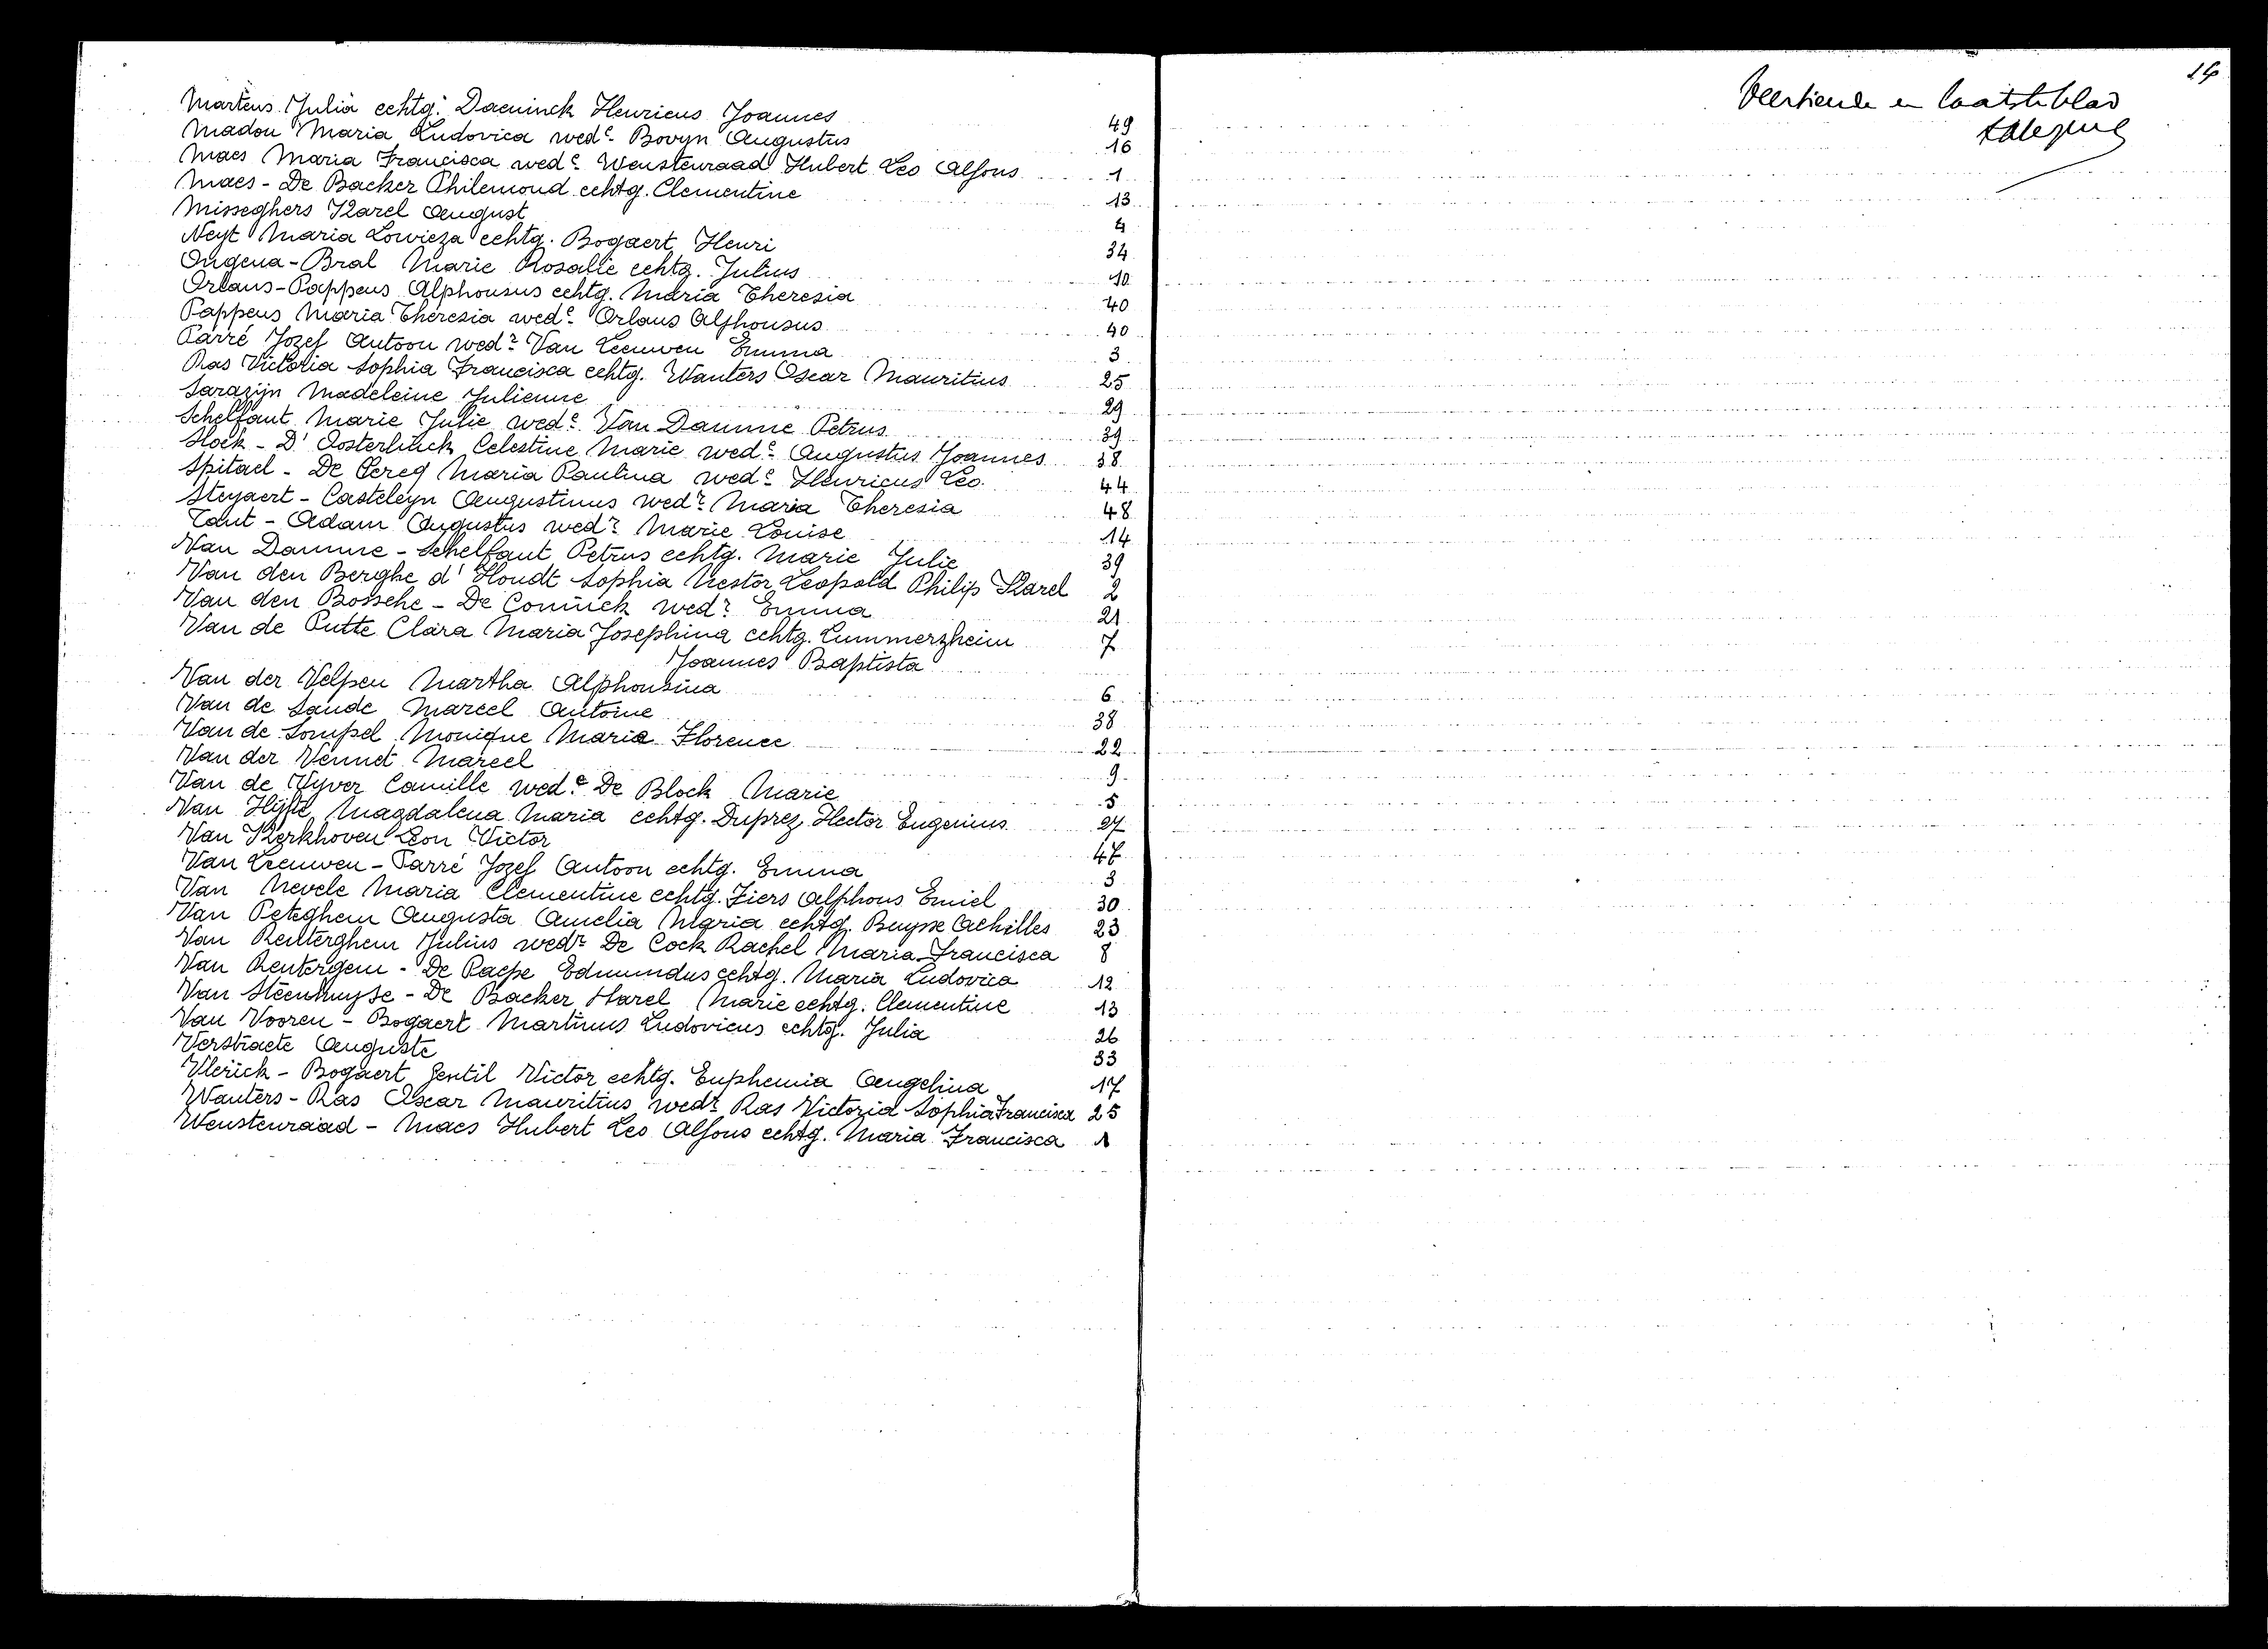 Martens Julia echtg. Daeninck Henricus Joannes 49
Madou Maria Ludovica wede Bovyn Augustus 16
Maes Maria Francisca wede Wenstenraad Hubert Leo Alfons 1
Maes - De Backer Philemond echtg. Clementine 13
Misseghers Karel August 4
Neyt Maria Lowieza echtg. Bogaert Henri 34
Ongena - Bral Marie Rosalie echtg. Julius 10
Orlans - Pappens Alphonsus echtg. Maria Theresia 40
Pappens Maria Theresia wede Orlans Alphonsus 40
Parré Jozef Antoon wedr Van Leeuwen Emma 3
Ras Victoria Sophia Francisca echtg. Wauters Oscar Mauritius 25
Sarazijn Madeleine Julienne 29
Schelfaut Marie Julie wede Van Damme Petrus 39
Slock - D'Oosterlinck Celestine Marie wede Augustus Joannes 38
Spitael - De Cereg Maria Paulina wede Henricus Leo 44
Steyaert - Casteleyn Augustinus wedr Maria Theresia 48
Tant - Adam Augustus wedr Marie Louise 14
Van Damme - Schelfaut Petrus echtg. Marie Julie 39
Van den Berghe d'Hondt Sophia Nestor Leopold Philip Karel 2
Van den Bossche - De Coninck wedr Emma 21
Van de Putte Clara Maria Josephina echtg. Lummerzheim 7
Joannes Baptista
Van der Velpen Martha Alphonsina 6
Van de Sande Marcel Antoine 38
Van de Sompel Monique Maria Florence 22
Van der Vennet Marcel 9
Van de Vyver Camille wede De Block Marie 5
Van Hijfte Magdalena Maria echtg. Duprez Hector Eugenius 27
Van Kerkhoven Leon Victor 47
Van Leeuwen - Parré Jozef Antoon echtg. Emma 3
Van Nevele Maria Clementine echtg. Fiers Alphons Emiel 30
Van Peteghem Augusta Amelia Maria echtg. Buysse Achilles 23
Van Renterghem Julius wedr De Cock Rachel Maria Francisca 8
Van Rentergem - De Paepe Edmundus echtg. Maria Ludovica 12
Van Steenhuyse - De Backer Karel Marie echtg. Clementine 13
Van Vooren - Bogaert Martinus Ludovicus echtg. Julia 26
Verstraete Auguste 33
Vlerick - Bogaert Gentil Victor echtg. Euphemia Angelina 17
Wauters - Ras Oscar Mauritius wedr Ras Victoria Sophia Francisca 25
Wenstenraad - Maes Hubert Leo Alfons echtg. Maria Francisca 1
14
Veertiende en laatste blad